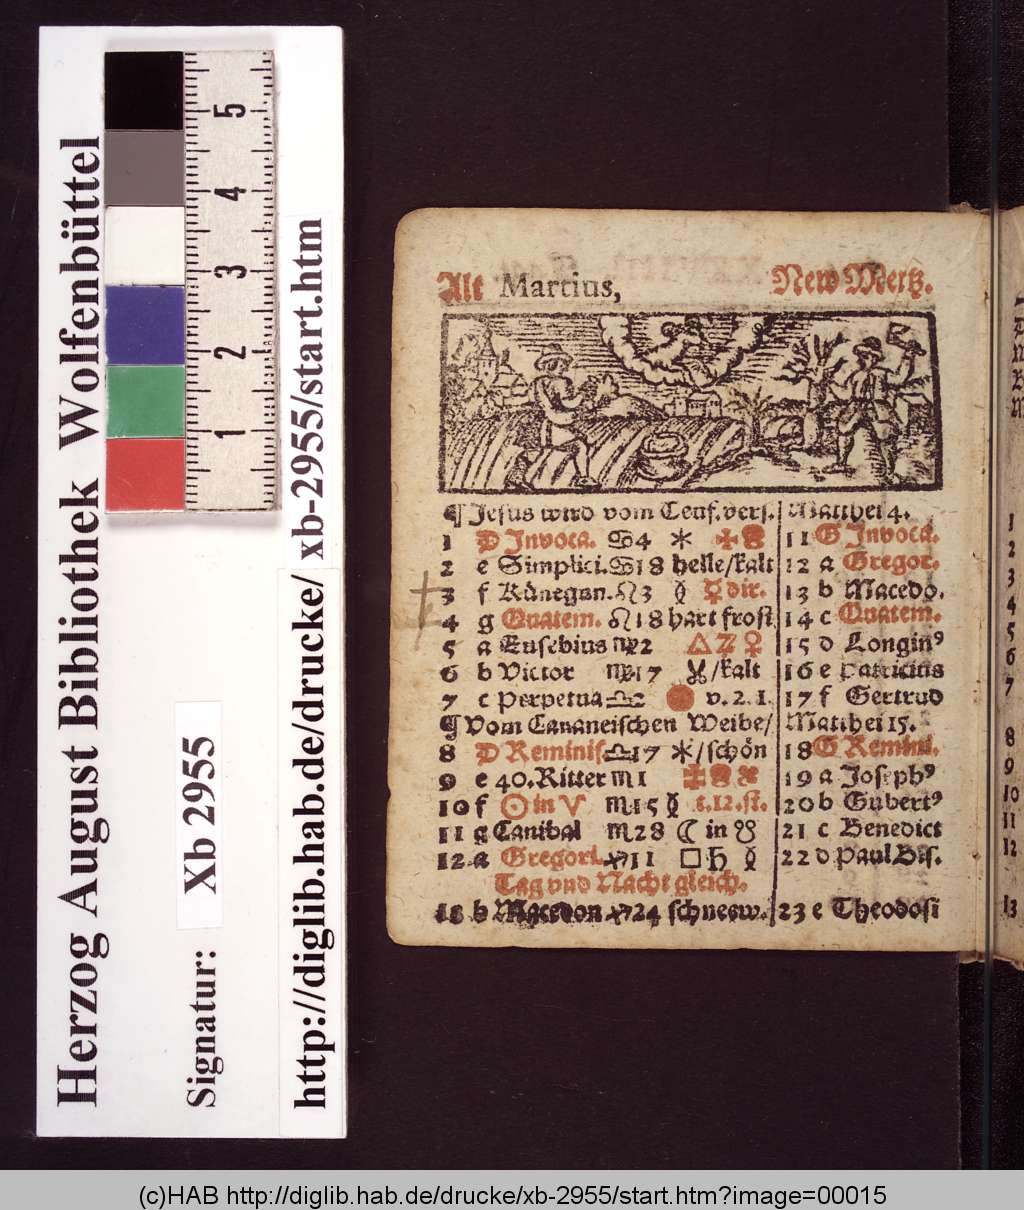 Herzog August Bibliothek Wolfenbüttel
Signatur: Xb 2955
http://diglib.hab.de/drucke/xb-2955/start.htm
1 2 3 4 5
Alt Martius, New Mertz.
¶ Jesus wird vom Teuf. vers. Matthei 4.
1 D Invoca. ♋4 ⚹ 11 G Invoca.
2 e Simplici. ♋18 helle/kalt 12 a Gregor.
3 f Kůnegun. ♌3 ☿ ♀ dir. 13 b Macedo.
4 g Quatem. ♌18 hart frost 14 c Quatem.
5 a Eusebius ♍2 △ ♃ ♀ 15 d Longin⁹
6 b Victor ♍17 /kalt 16 e Patricius
7 c Perpetua ♎2 v. 2. 1. 17 f Gertrud
¶ Vom Cananeischen Weibe/ Matthei 15.
8 D Reminis. ♎17 ⚹/schőn 18 G Remini.
9 e 40. Ritter ♏1 19 a Joseph⁹
10 f ☉ in ♈ ♏15 ☿ t. 12. st. 20 b Gubert⁹
11 g Canibal ♏28 ☾ in ☋ 21 c Benedict
12 a Gregori. ♐11 □ ♄ ☿ 22 d Paul Bis.
Tag vnd Nacht gleich.
13 b Macedon ♐24 schneew. 23 e Theodosi
1
2
3
4
5
6
7
8
9
10
11
12
13
(c)HAB http://diglib.hab.de/drucke/xb-2955/start.htm?image=00015